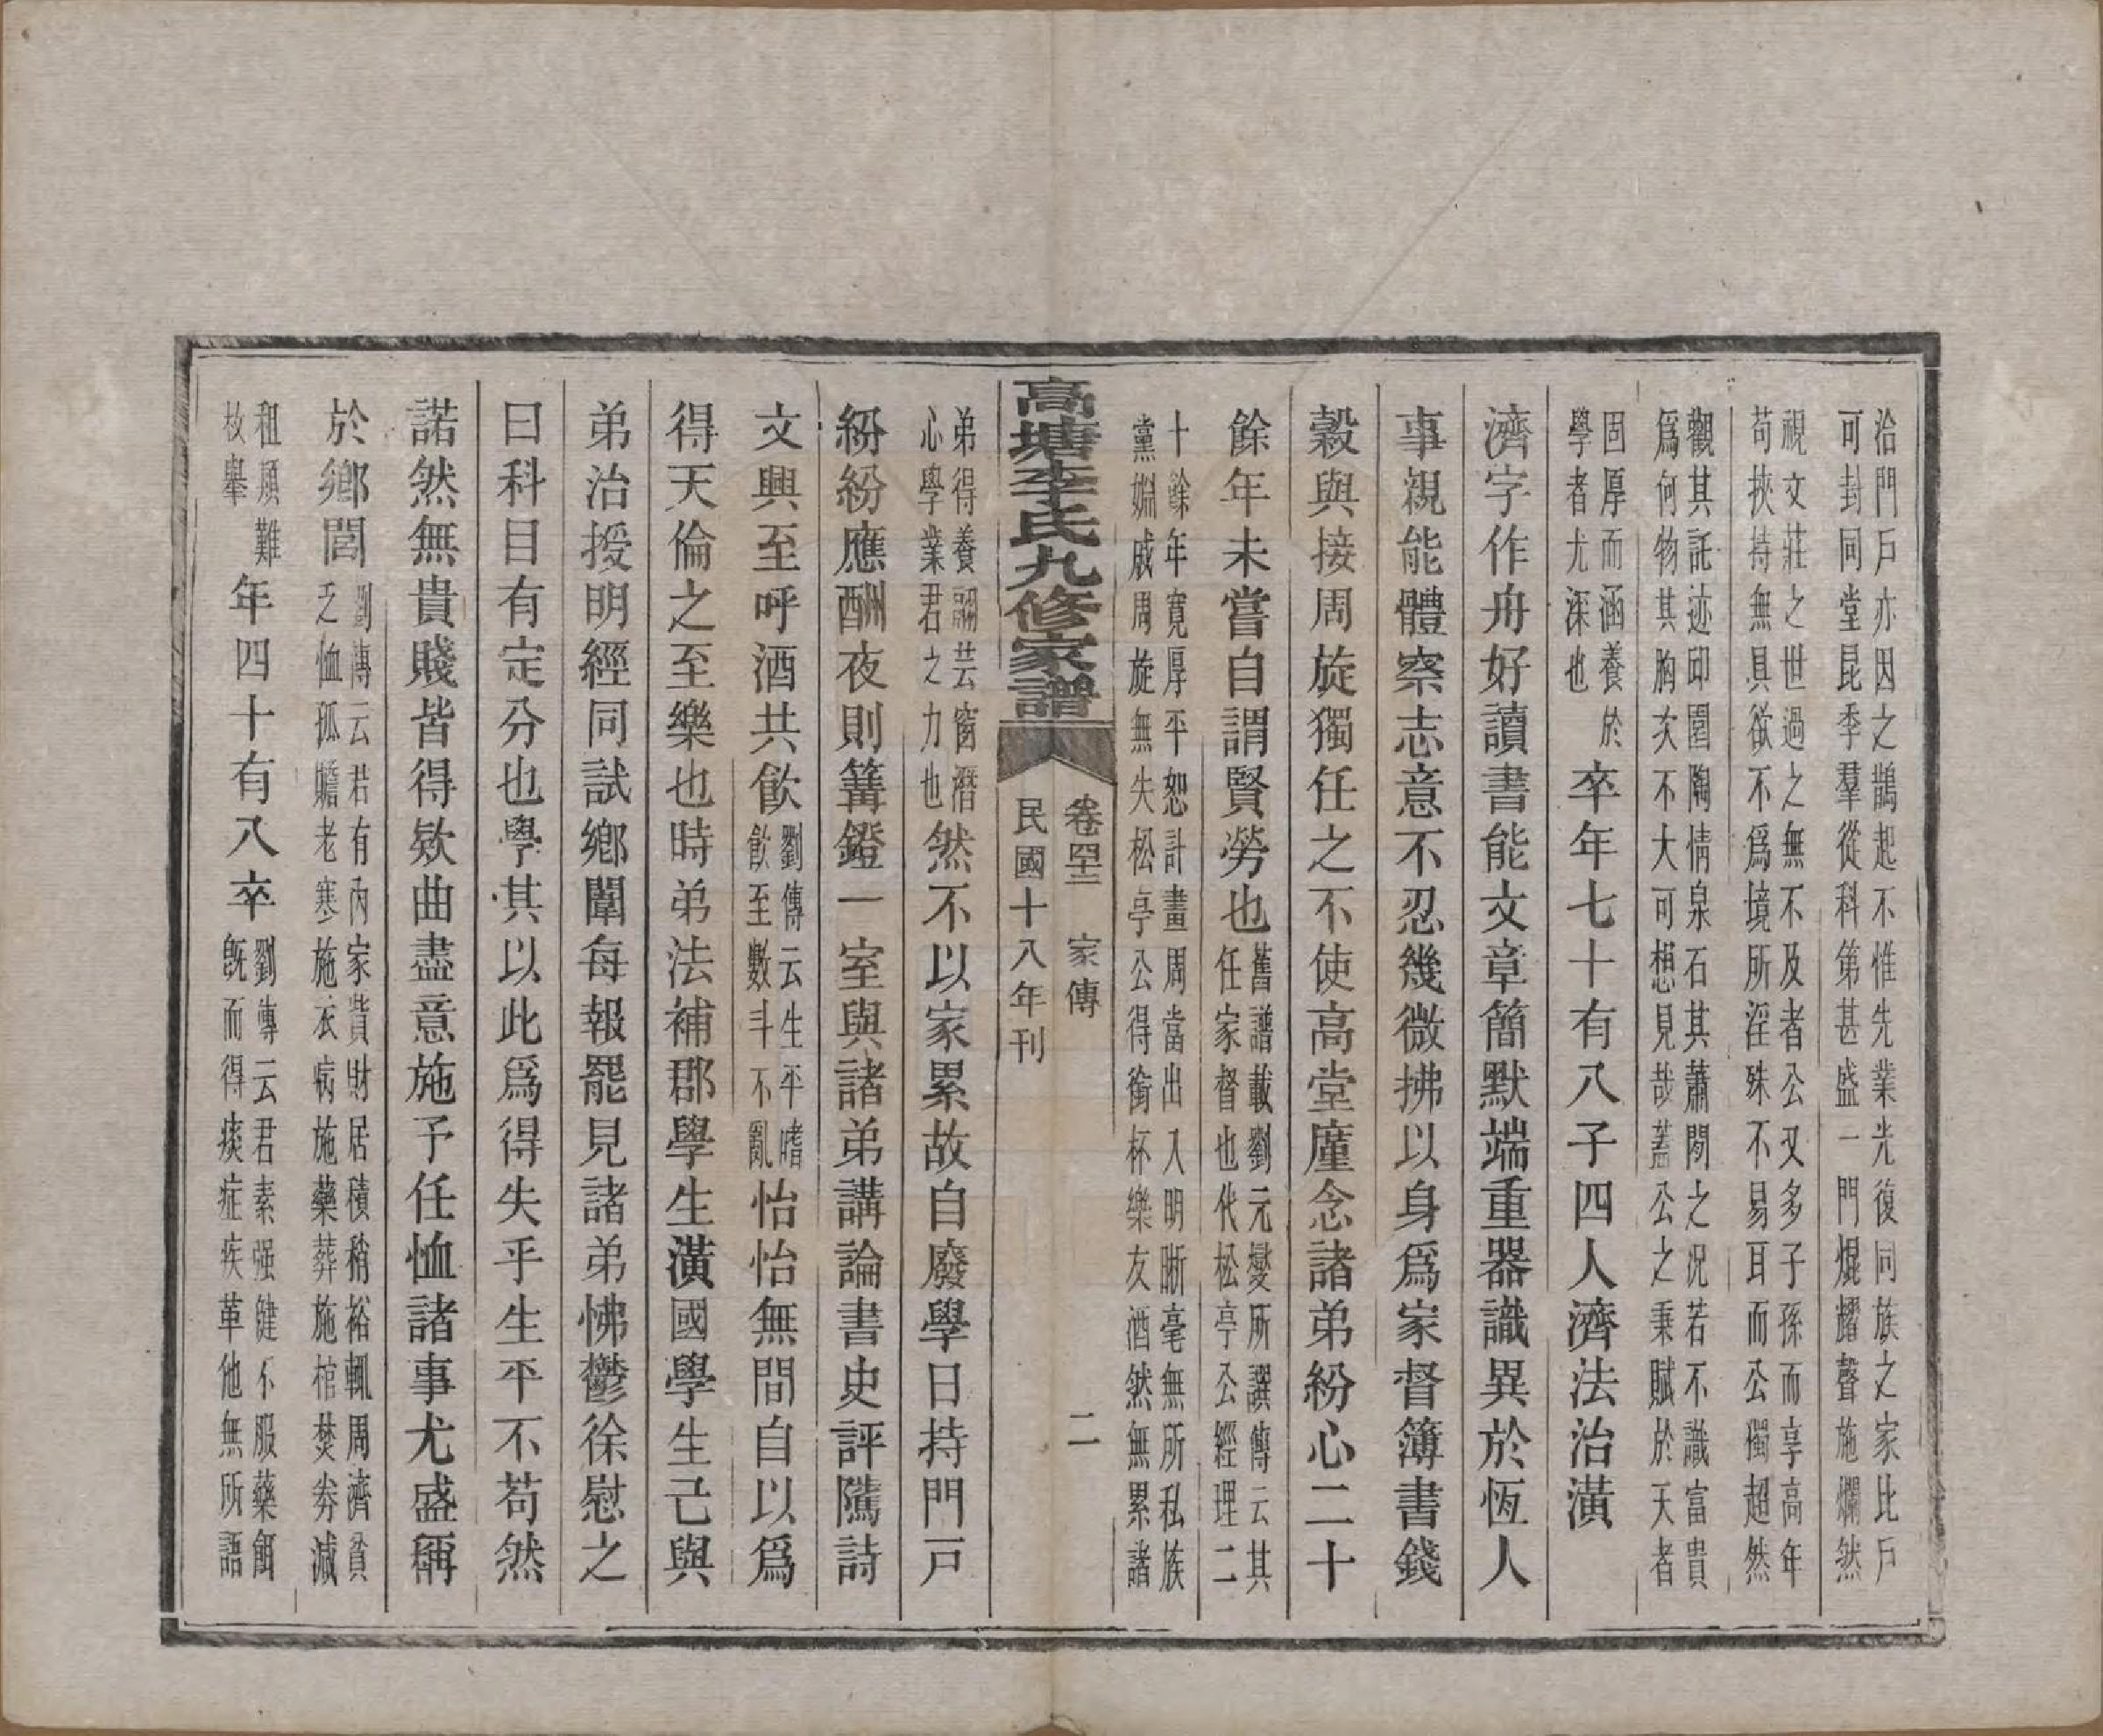 洽門戶亦因之鵲起不惟先業光復同族之家比戶
可封同堂昆季羣從科第甚盛一門焜耀聲施爛然
視文莊之世過之無不及者公又多子孫而享高年
苟挾持無具欲不爲境所淫殊不易耳而公獨超然
觀其託迹邱園陶情泉石其蕭閒之況若不識富貴
爲何物其胸次不大可想見哉蓋公之秉賦於天者
固厚而涵養於
學者尤深也
卒年七十有八子四人濟法治潢
濟字作舟好讀書能文章簡默端重器識異於恆人
事親能體察志意不忍幾微拂以身爲家督簿書錢
穀與接周旋獨任之不使高堂廑念諸弟紛心二十
餘年未嘗自謂賢勞也
舊譜載劉元燮所譔傳云其
任家督也代松亭公經理二
十餘年寬厚平恕計畫周當出入明晰毫無所私族
黨婣戚周旋無失松亭公得銜杯樂友酒然無累諸
高塘李氏九修家譜
卷四十二 家傳
二
民國十八年刊
弟得養翮芸窗潛
心學業君之力也
然不以家累故自廢學日持門戶
紛紛應酬夜則篝鐙一室與諸弟講論書史評隲詩
文興至呼酒共飲
劉傳云生平嗜
飲至數斗不亂
怡怡無間自以爲
得天倫之至樂也時弟法補郡學生潢國學生己與
弟治授明經同試鄉闈每報罷見諸弟怫鬱徐慰之
曰科目有定分也學其以此爲得失乎生平不苟然
諾然無貴賤皆得欵曲盡意施予任恤諸事尤盛稱
於鄉閭
劉傳云若有內家貲財居積稍裕輒周濟貧
乏恤孤贍老寒施衣病施藥葬施棺焚券減
租願難
枚舉
年四十有八卒
劉傳云君素强健不服藥餌
旣而得痰症疾革他無所語